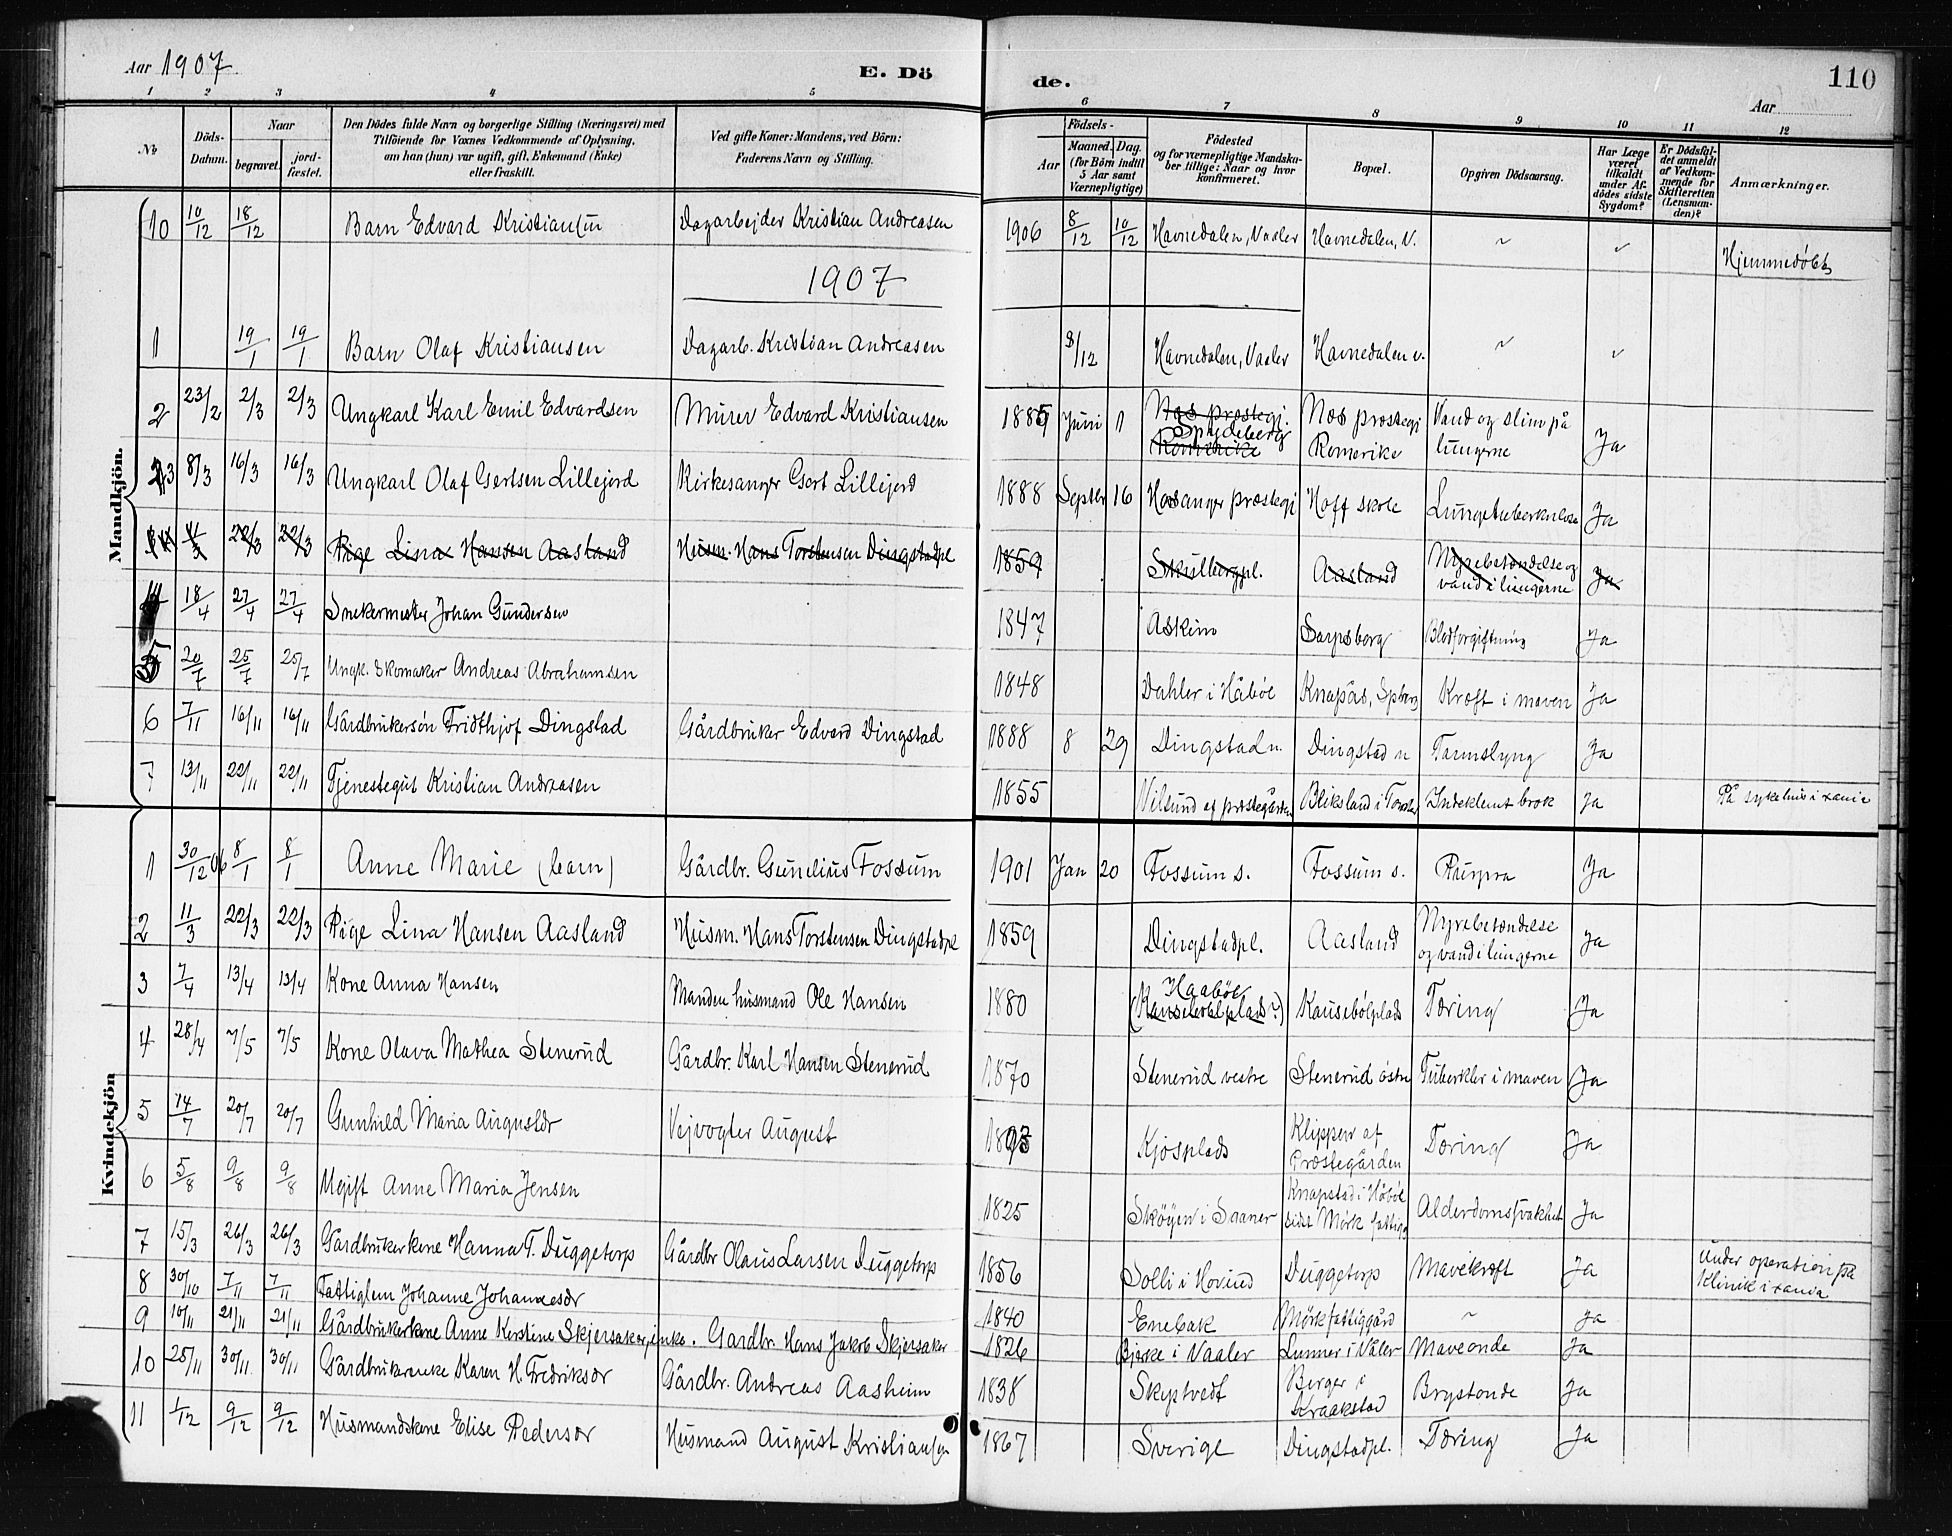 Aar 1907
E. Dö
de.
110
Aar
1 2 3 4 5 6 7 8 9 10 11 12
No
Döds-Datum.
Naar
begravet.
jord-fæstet.
Den Dödes fulde Navn og borgerlige Stilling (Næringsvei) med
Tilföiende for Voxnes Vedkommende af Oplysning,
om han (hun) var ugift, gift, Enkemand (Enke)
eller fraskilt.
Ved gifte Koner: Mandens, ved Börn:
Faderens Navn og Stilling.
Födsels-
Aar
Maaned. Dag.
(for Börn indtil
5 Aar samt
Værnepligtige)
Födested
og for værnepligtige Mandska-
ber tillige: Naar og hvor
konfirmeret.
Bopæl.
Opgiven Dödsaarsag.
Har Læge
været
tilkaldt
under Af-
dödes sidste
Sygdom?
Er Dödsfal-
det anmeldt
af Vedkom-
mende for
Skifteretten
(Lensman-
den)?
Anmærkninger.
Mandkjön.
10 10/12 18/12 Barn Edvard Kristiansen Dagarbejder Kristian Andreasen 1906 8/12 10/12 Havnedalen, Vaaler Havnedalen, V. ~ ~ Hjemmedøbt
1907
1 19/1 19/1 Barn Olaf Kristiansen Dagarb. Kristian Andreasen 8/12 Havnedalen, Vaaler Havnedalen v. ~ ~
2 23/2 2/3 2/3 Ungkarl Karl Emil Edvardsen Murer Edvard Kristiansen 1885 Juni 1 Nes præstegj. Spydeberg Romerike Nes præstegj Romerike Vand og slim på lungerne Ja
3 8/3 16/3 16/3 Ungkarl Olaf Gertsen Lillejord Kirkesanger Gert Lillejord 1888 Septbr 16 Hosanger præstegj Hoff skole Lungetuberkulose Ja
4 11/3 22/3 22/3 Pige Lina Hansen Aasland Husm. Hans Torstensen Dingstadpl 1859 Skullerygpl. Aasland Nyrebetændelse og vand i lungerne Ja
4 18/4 27/4 27/4 Snekermester Johan Gundersen 1847 Askim Sarpsborg Blodforgiftning Ja
5 20/7 25/7 25/7 Ungk. Skomaker Andreas Abrahamsen 1848 Dahler i Håbøl Knapstad, Spberg Kræft i maven Ja
6 7/11 16/11 16/11 Gårdbrukersøn Fridthjof Dingstad Gårdbruker Edvard Dingstad 1888 8 29 Dingstad n. Dingstad n Tarmslyng Ja
7 13/11 22/11 22/11 Tjenestegut Kristian Andreasen 1855 Vilsund af præstegården Bliksland i Indeklemt brok Ja På sykehus i
Kvindekjön
1 30/12 06 8/1 8/1 Anne Marie (barn) Gårdbr. Gunelius Fossum 1901 Jan 20 Fossum s. Fossum s. Ja
2 11/3 22/3 22/3 Pige Lina Hansen Aasland Husm. Hans Torstensen Dingstadpl 1859 Dingstadpl. Aasland Nyrebetændelse og vand i lungerne Ja
3 7/4 13/4 13/4 Kone Anna Hansen Manden husmand Ole Hansen 1880 Haabøl (Kausebølplads?) Kausebølplads Tæring Ja
4 28/4 7/5 7/5 Kone Olava Mathea Stenerud Gårdbr. Karl Hansen Stenerud 1870 Stenerud vestre Stenerud østre Tuberkler i maven Ja
5 14/7 20/7 20/7 Gunhild Maria Augustdr Vejvogter August 1893 Kjosplads Klippen af Præstegården Tæring Ja
6 5/8 9/8 9/8 Ugift Anne Maria Jensen 1825 Skøyen i Saaner Knapstad i Håbøl sidst Mørk fattigg Alderdomssvakhet Ja
7 15/3 26/3 26/3 Gårdbrukerkone Hanna T. Duggetorp Gårdbr Olaus Larsen Duggetorp 1856 Solli i Hovind Duggetorp Mavekræft Ja under operation på klinik i
8 30/10 7/11 7/11 Fattiglem Johanne Johannesdr 1840 Enebak Mørk fattiggård ~ Ja
9 10/11 21/11 21/11 Gårdbrukerkone Anne Kerstine Skjersaker, enke. Gardbr. Hans Jakob Skjersaker 1826 Bjerke i Vaaler Lunner i Våler Maveonde Ja
10 25/11 30/11 30/11 Gårdbrukerenke Karen H. Fredriksdr Gårdbr. Andreas Aasheim 1838 Skiptvedt Berger i Kraakstad Brystonde Ja
11 1/12 9/12 9/12 Husmandskone Elise Pedersdr Husmand August Kristiansen 1867 Sverige Dingstadpl. Tæring Ja